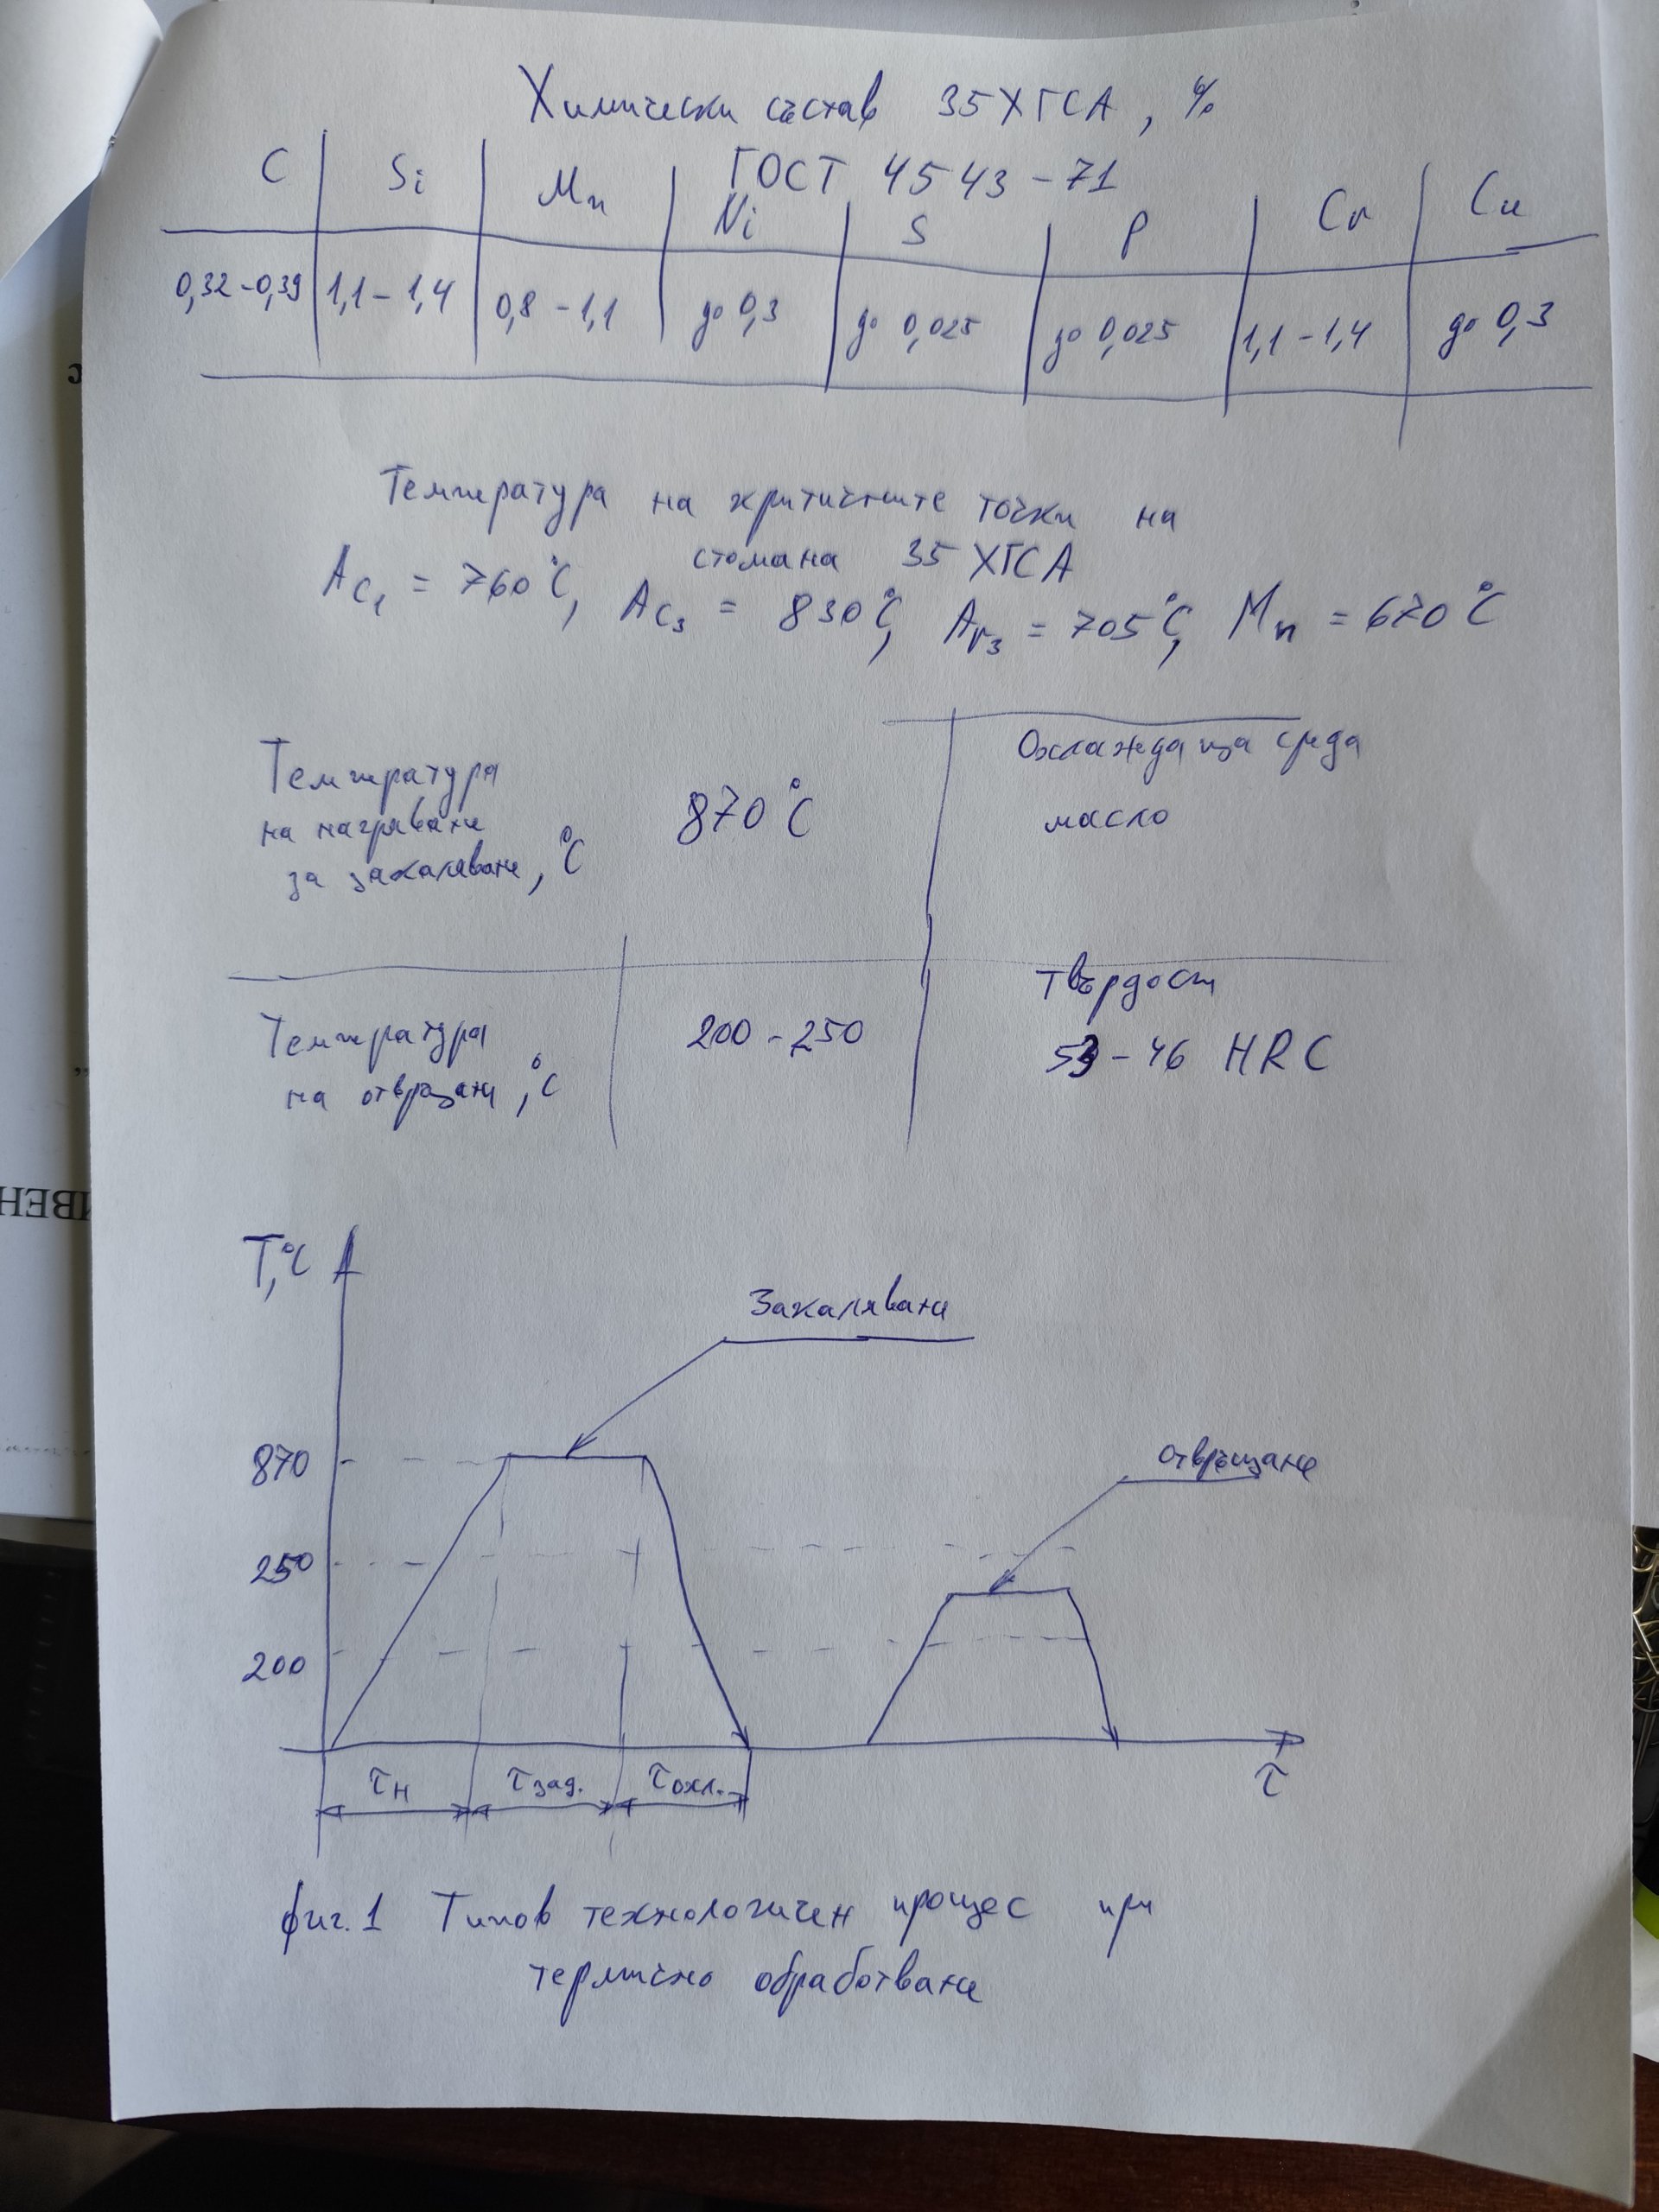 Химически състав 35ХГСА, %
ГОСТ 4543-71
C Si Mn Ni S P Cr Cu
0,32-0,39 1,1-1,4 0,8-1,1 до 0,3 до 0,025 до 0,025 1,1-1,4 до 0,3
Температура на критичните точки на
стомана 35ХГСА
Ac1 = 760°C, Ac3 = 830°C, Ar3 = 705°C, Mn = 670°C
Температура
на нагряване
за закаляване, °C
870°C
Охлаждаща среда
масло
Температура
на отвръщане, °C
200-250
Твърдост
53-46 HRC
T,°C
Закаляване
870
отвръщане
250
200
τн τзад. τохл.
τ
фиг.1 Типов технологичен процес при
термично обработване